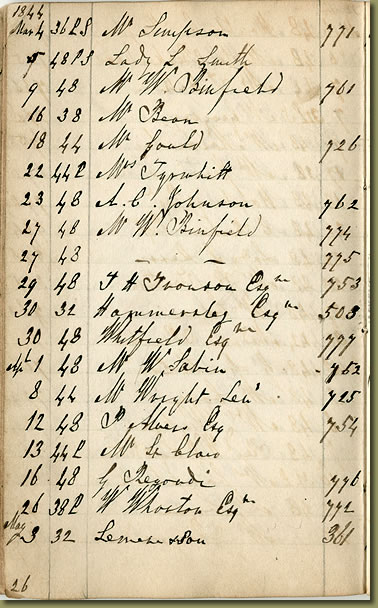 1844
Mar 4 36 P S Mr Simpson 771
5 48 P S Lady L Smith
9 48 Mr W. Binfield 761
16 38 Mr Bean
18 44 Mr Gould 726
22 44 P Mrs Tyrwhitt
23 48 A. C. Johnson 762
27 48 Mr W. Binfield 774
27 48 — 775
29 48 T H Tronson Esqre 753
30 32 Hammersley Esqre 503
30 48 Whitfield Esqre 777
Apl 1 48 Mr W. Sabin 752
8 44 Mr Wright Senr 725
12 48 P Esq 754
13 44 P Mr St Clair
16 48 G Regondi 776
26 38 P W Whorton Esqre 772
May
3 32 & Son 361
26